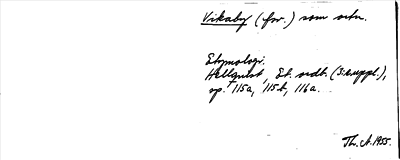 Vikaby (för.) som ortn.
Etymologi:
Hellquist, Et. ordb. (3:e uppl.),
sp. 115a, 115b, 116a.
Th. A. 1955.